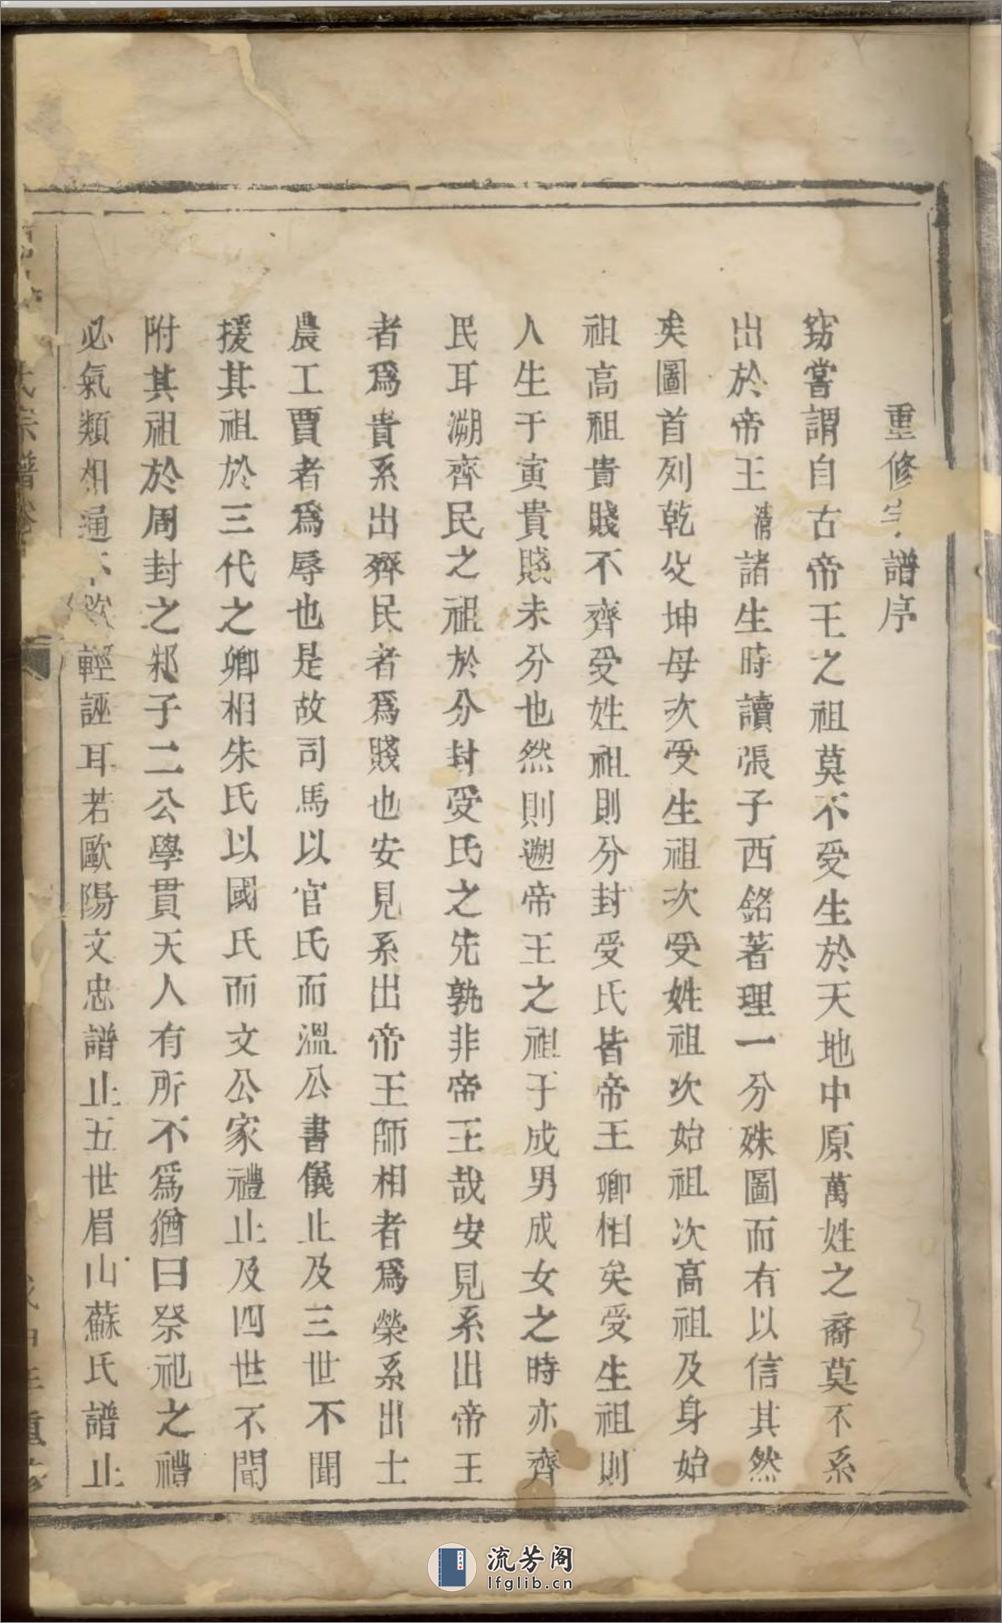 重修宗譜序
竊嘗謂自古帝王之祖莫不受生於天地中原萬姓之裔莫不系
出於帝王清諸生時讀張子西銘著理一分殊圖而有以信其然
矣圖首列乾父坤母次受生祖次受姓祖次始祖次高祖及身始
祖高祖貴賤不齊受姓祖則分封受氏皆帝王卿相矣受生祖則
人生于寅貴賤未分也然則遡帝王之祖于成男成女之時亦齊
民耳溯齊民之祖於分封受氏之先孰非帝王哉安見系出帝王
者爲貴系出齊民者爲賤也安見系出帝王師相者爲榮系出士
農工賈者爲辱也是故司馬以官氏而溫公書儀止及三世不聞
援其祖於三代之卿相朱氏以國氏而文公家禮止及四世不聞
附其祖於周封之邾子二公學貫天人有所不爲猶曰祭祀之禮
必氣類相通不敢輕誣耳若歐陽文忠譜止五世眉山蘇氏譜止
氏宗譜卷
重修
流芳阁
lfglib.cn